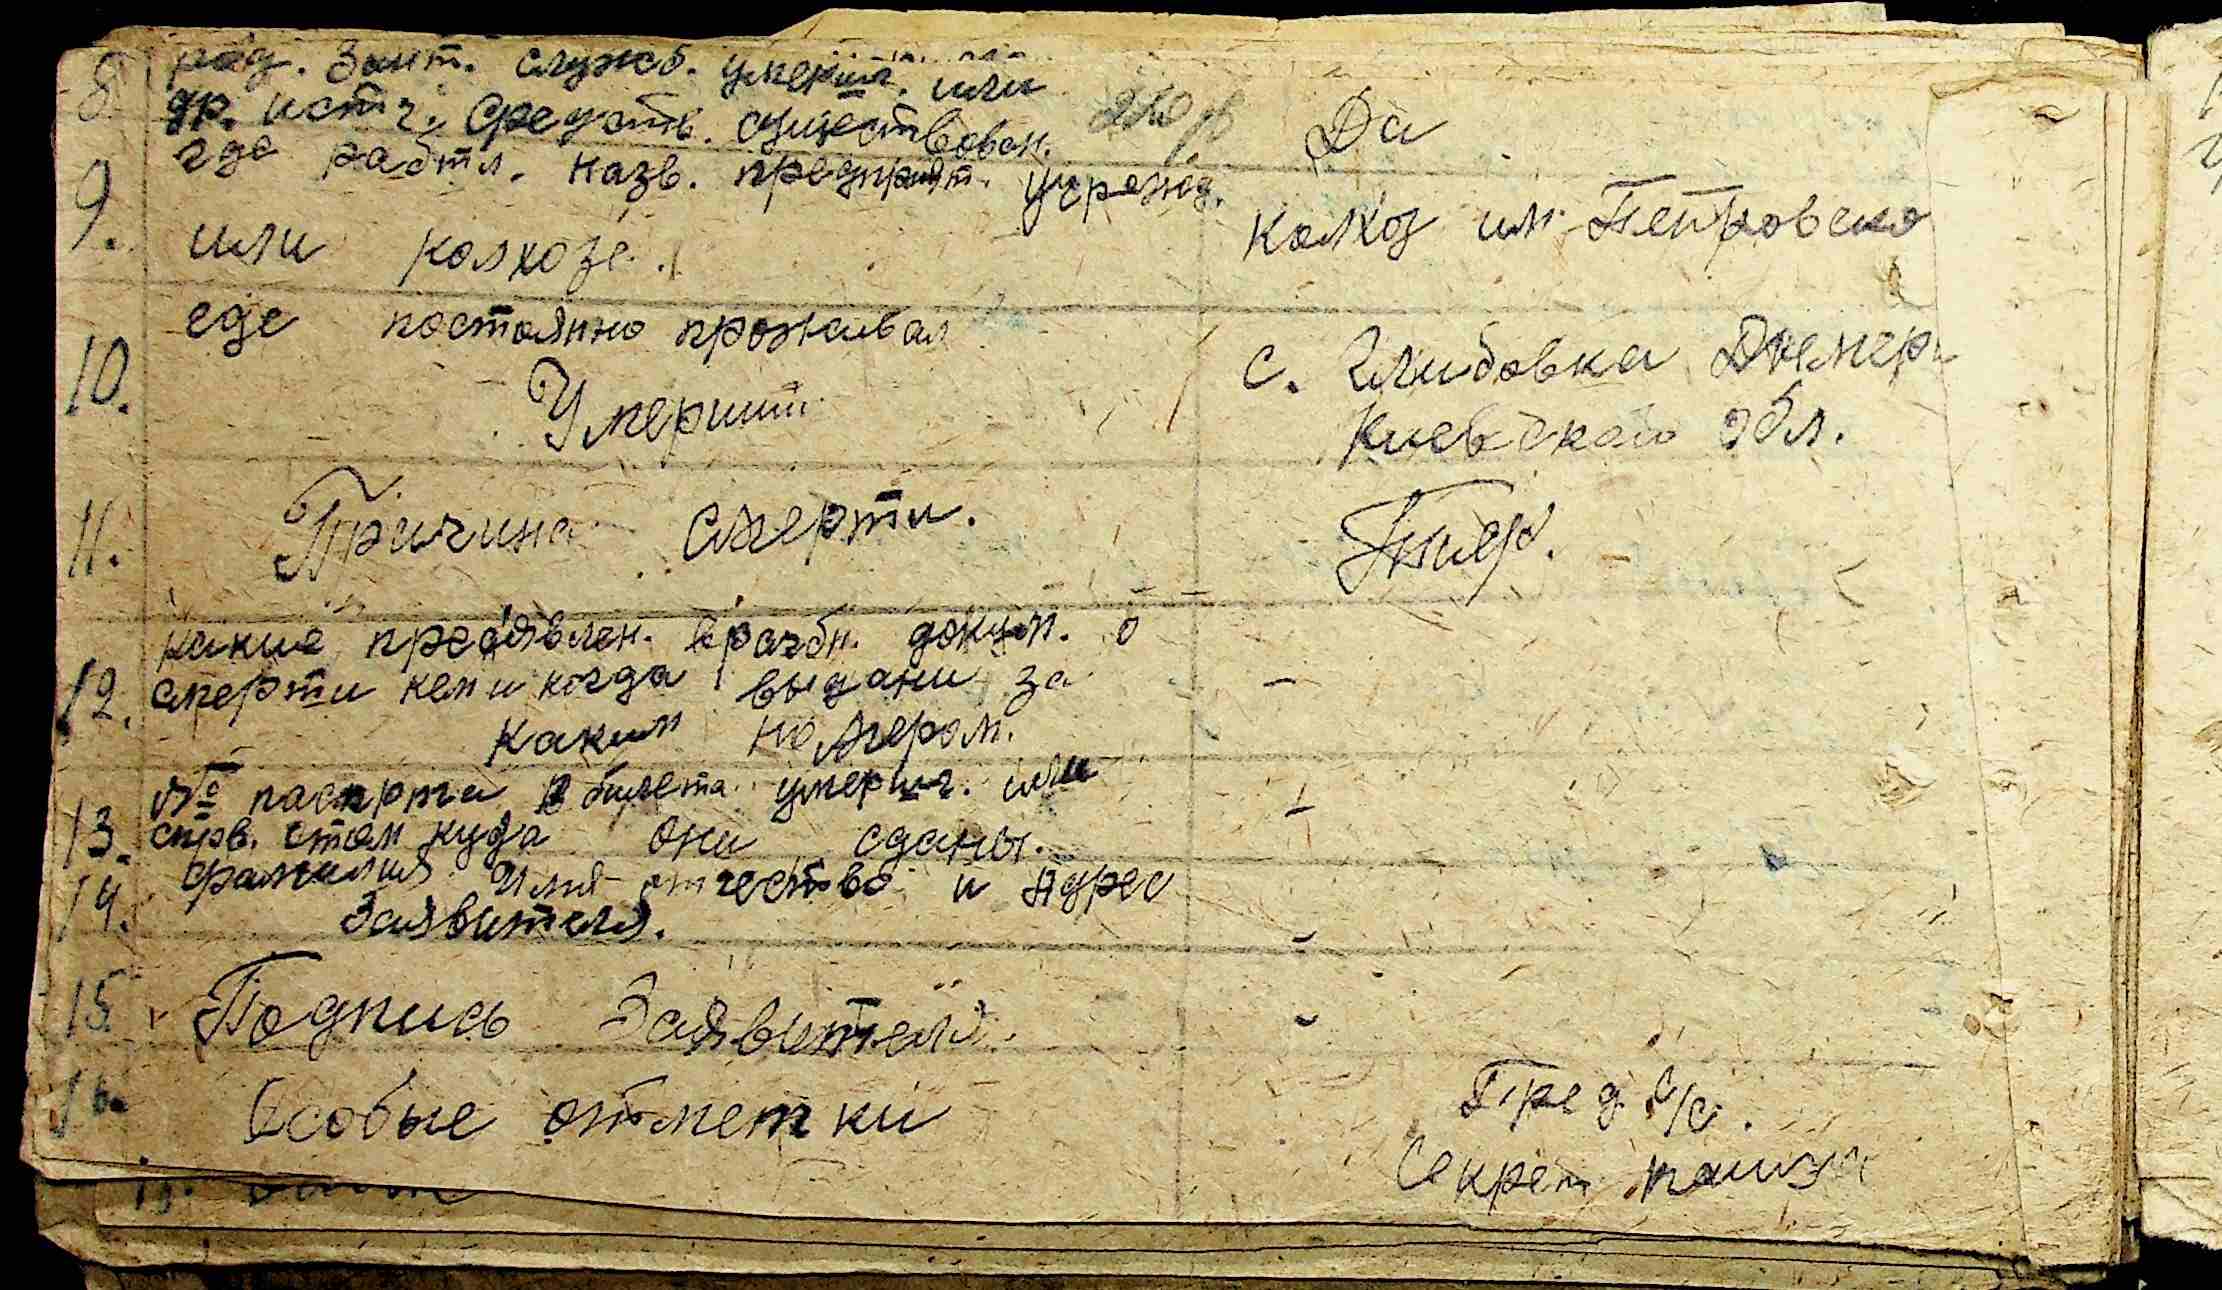 8. рад. Зант. служб. умерш. или
др. источ. Средств. существован. Да
9. где рабтл. назв. предприят. учрежд.
или колхозе. Колхоз им. Петровско
10. где постоянно проживал
Умерший. с. Глибовка Дымер
Киевского обл.
11. Причина смерти.
12. какие предявлен. врачбн. докум. о
смерти кем и когда выдани за -
каким номером.
13. № паспрта В билета умерш. или -
спрв. стам куда они сданы.
14. фамилия Имя отчество и Адрес
Заявителя. -
15. Подпись Заявителя. -
16. Особые отметки Пред. с/с.
Секрет